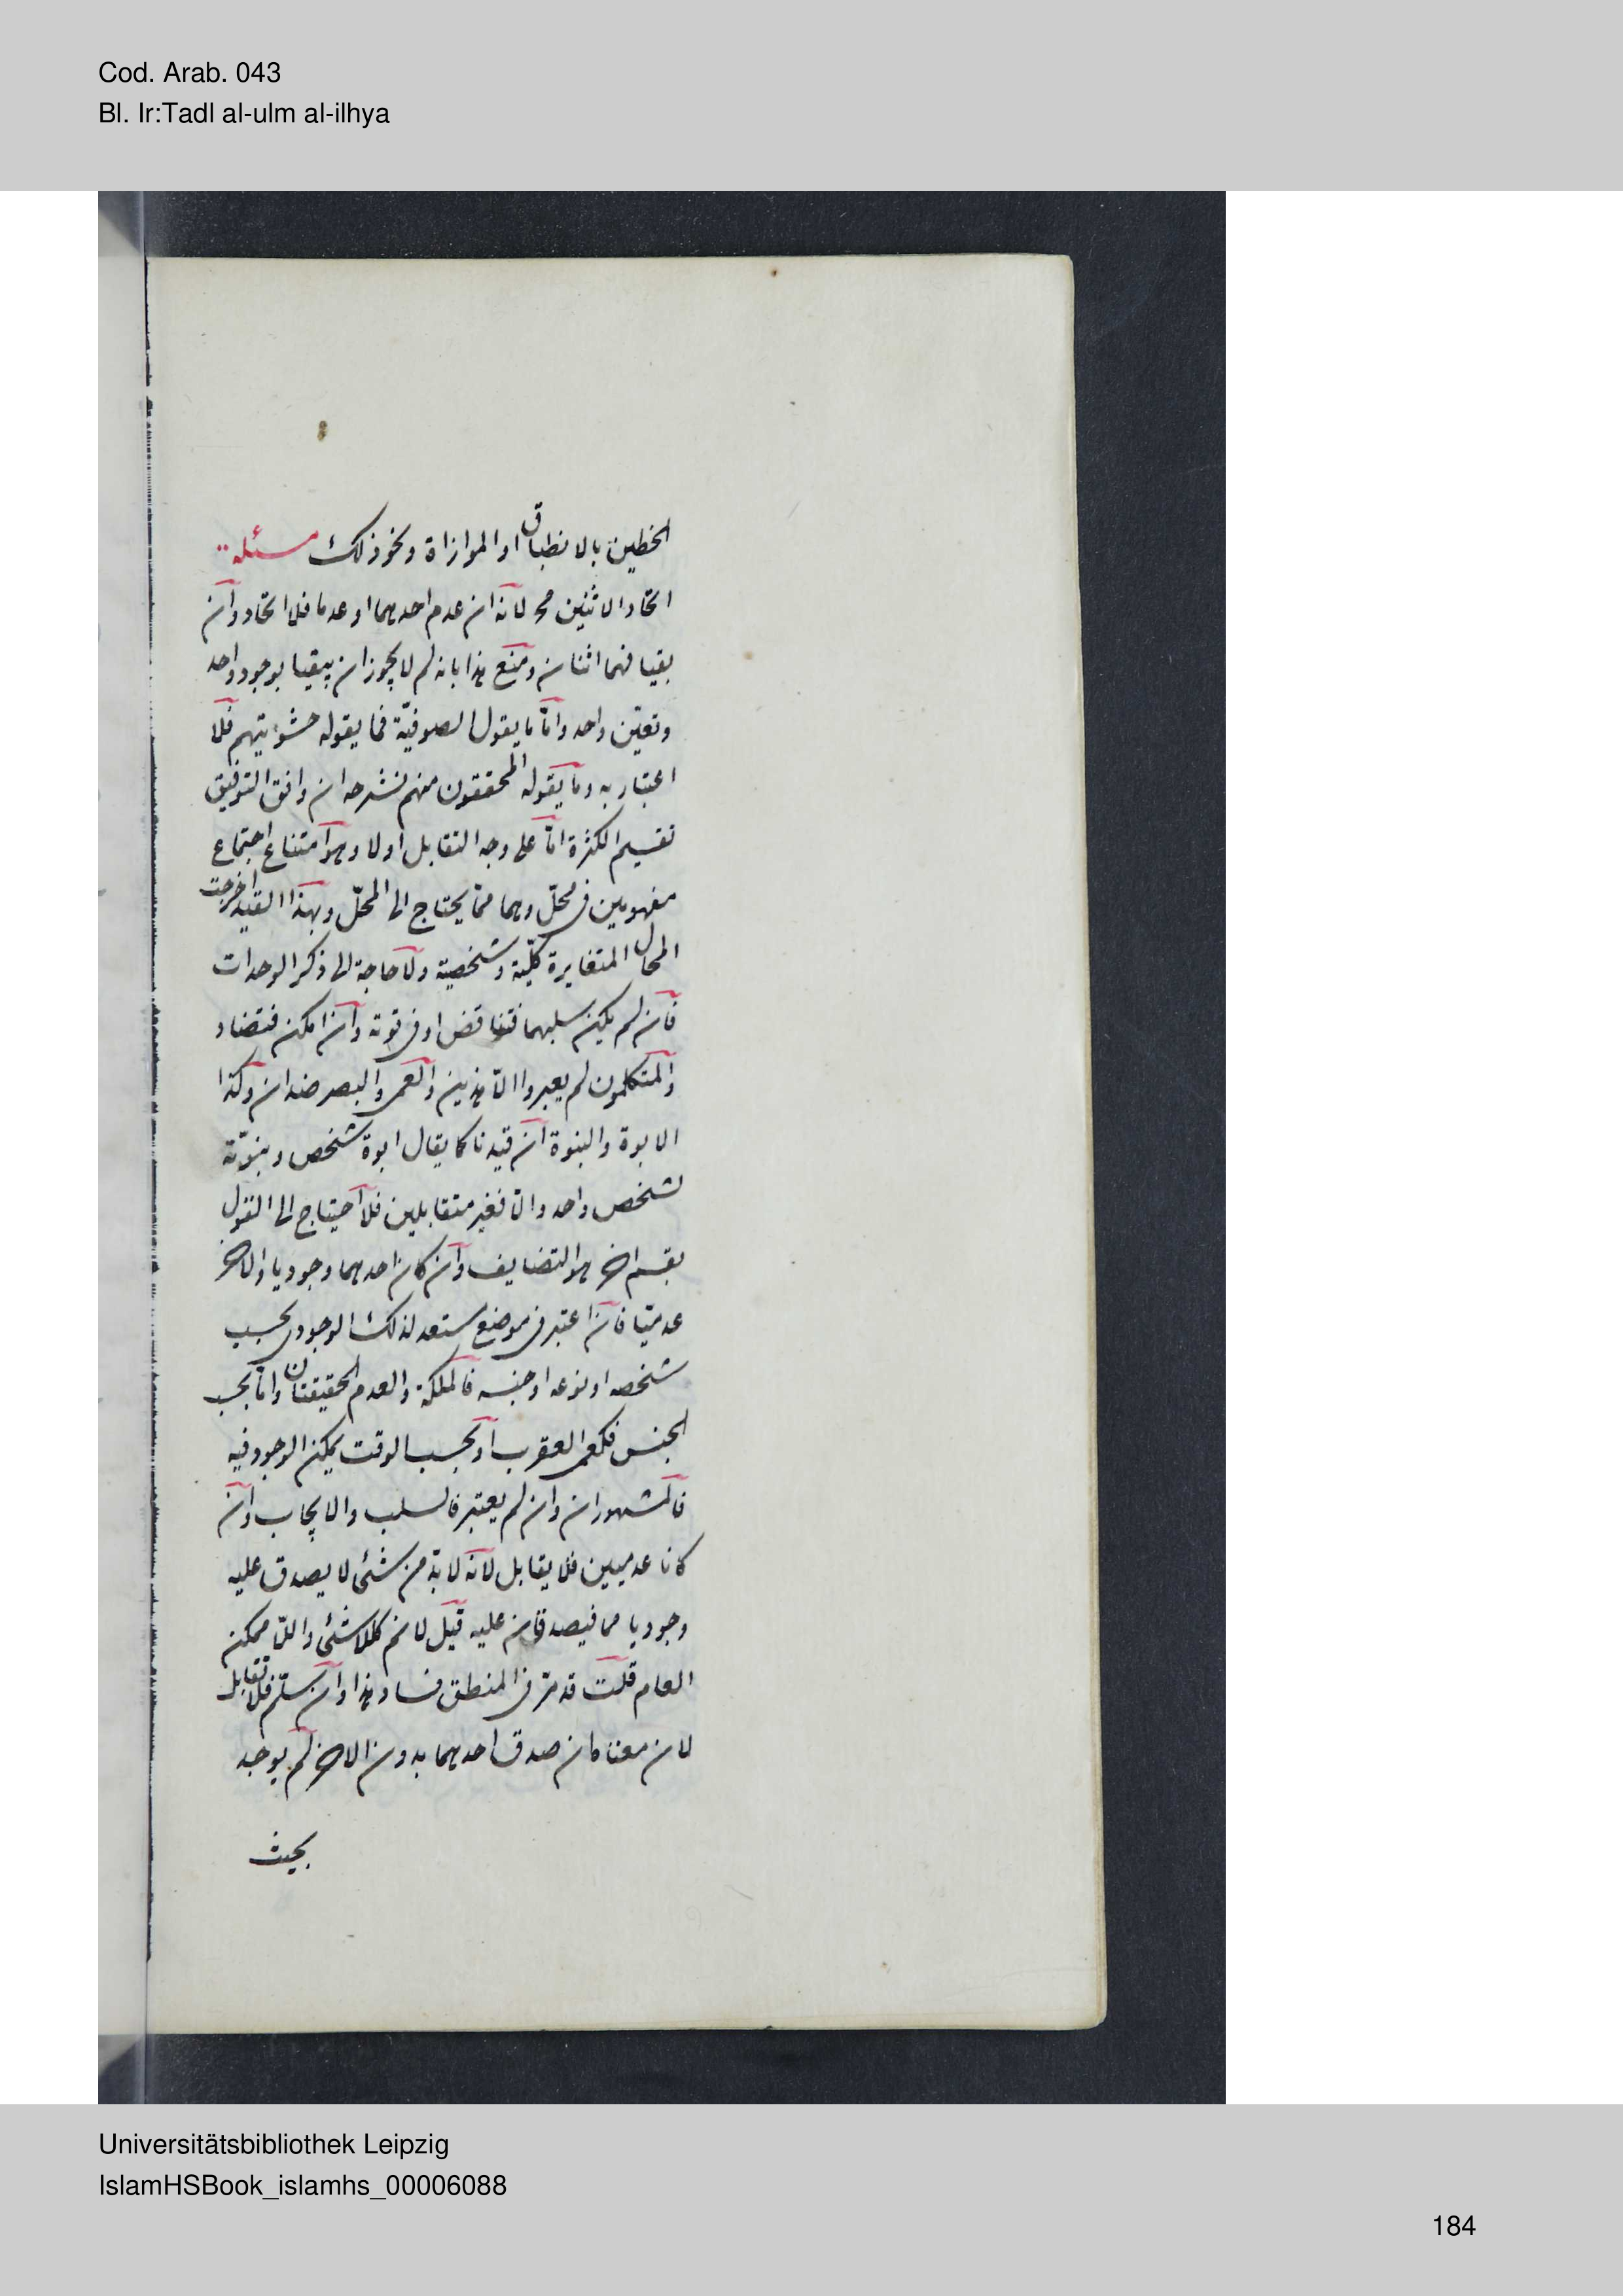 Cod. Arab. 043
Bl. Ir:Tadl al-ulm al-ilhya
الخطين بالانطباق او الموازاة ونحو ذلك مسئلة
اتحاد الاثنين مح لانه ان عدم احدهما او عدما فلا اتحاد وان
بقيا فهما اثنان ومنع هذا بانه لم لا يجوز ان يبقيا بوجود واحد
وتعين واحد واما ما يقول الصوفية فما يقوله حشويتهم فلا
اعتبار به وما يقوله المحققون منهم نشرحه ان وافق التوفيق
تقسيم الكثرة اما على وجه التقابل اولا وهو امتناع اجتماع
مفهومين فى محل وهما مما يحتاج الى المحل وبهذا القيد اخرجت
المحال المتغايرة كلية وشخصية ولا حاجة الى ذكر الوحدات
فان لم يكن سلبهما فتناقض او فى قوته وان امكن فتضاد
والمتكلمون لم يعبروا الا هذين والعمى والبصر ضدان وكذا
الابوة والبنوة ان قيدنا كما يقال ابوة شخص وبنوته
لشخص واحد والا فغير متقابلين فلا احتياج الى القول
بقسم اخر هو التضايف وان كان احدهما وجوديا والاخر
عدميا فان اعتبر فى موضع مستعد لذلك الوجودى بحسب
شخصه او نوعه او جنسه فالملكة والعدم الحقيقتان واما بحسب
الجنس فكعمى العقرب او بحسب الوقت يمكن الوجود فيه
فالمشهوران وان لم يعتبر فالسلب والايجاب وان
كانا عدميين فلا يقابل لانه لا بد من شئ لا يصدق عليه
وجوديا هما فيصدقان عليه قيل لا نم كاللاشئ واللا ممكن
العام قلت قد مر فى المنطق فساد هذا وان سلم فلا تقابل
لان معناه ان صدق احدهما بدون الاخر لم يوجد
بحيث
Universitätsbibliothek Leipzig
IslamHSBook_islamhs_00006088
184